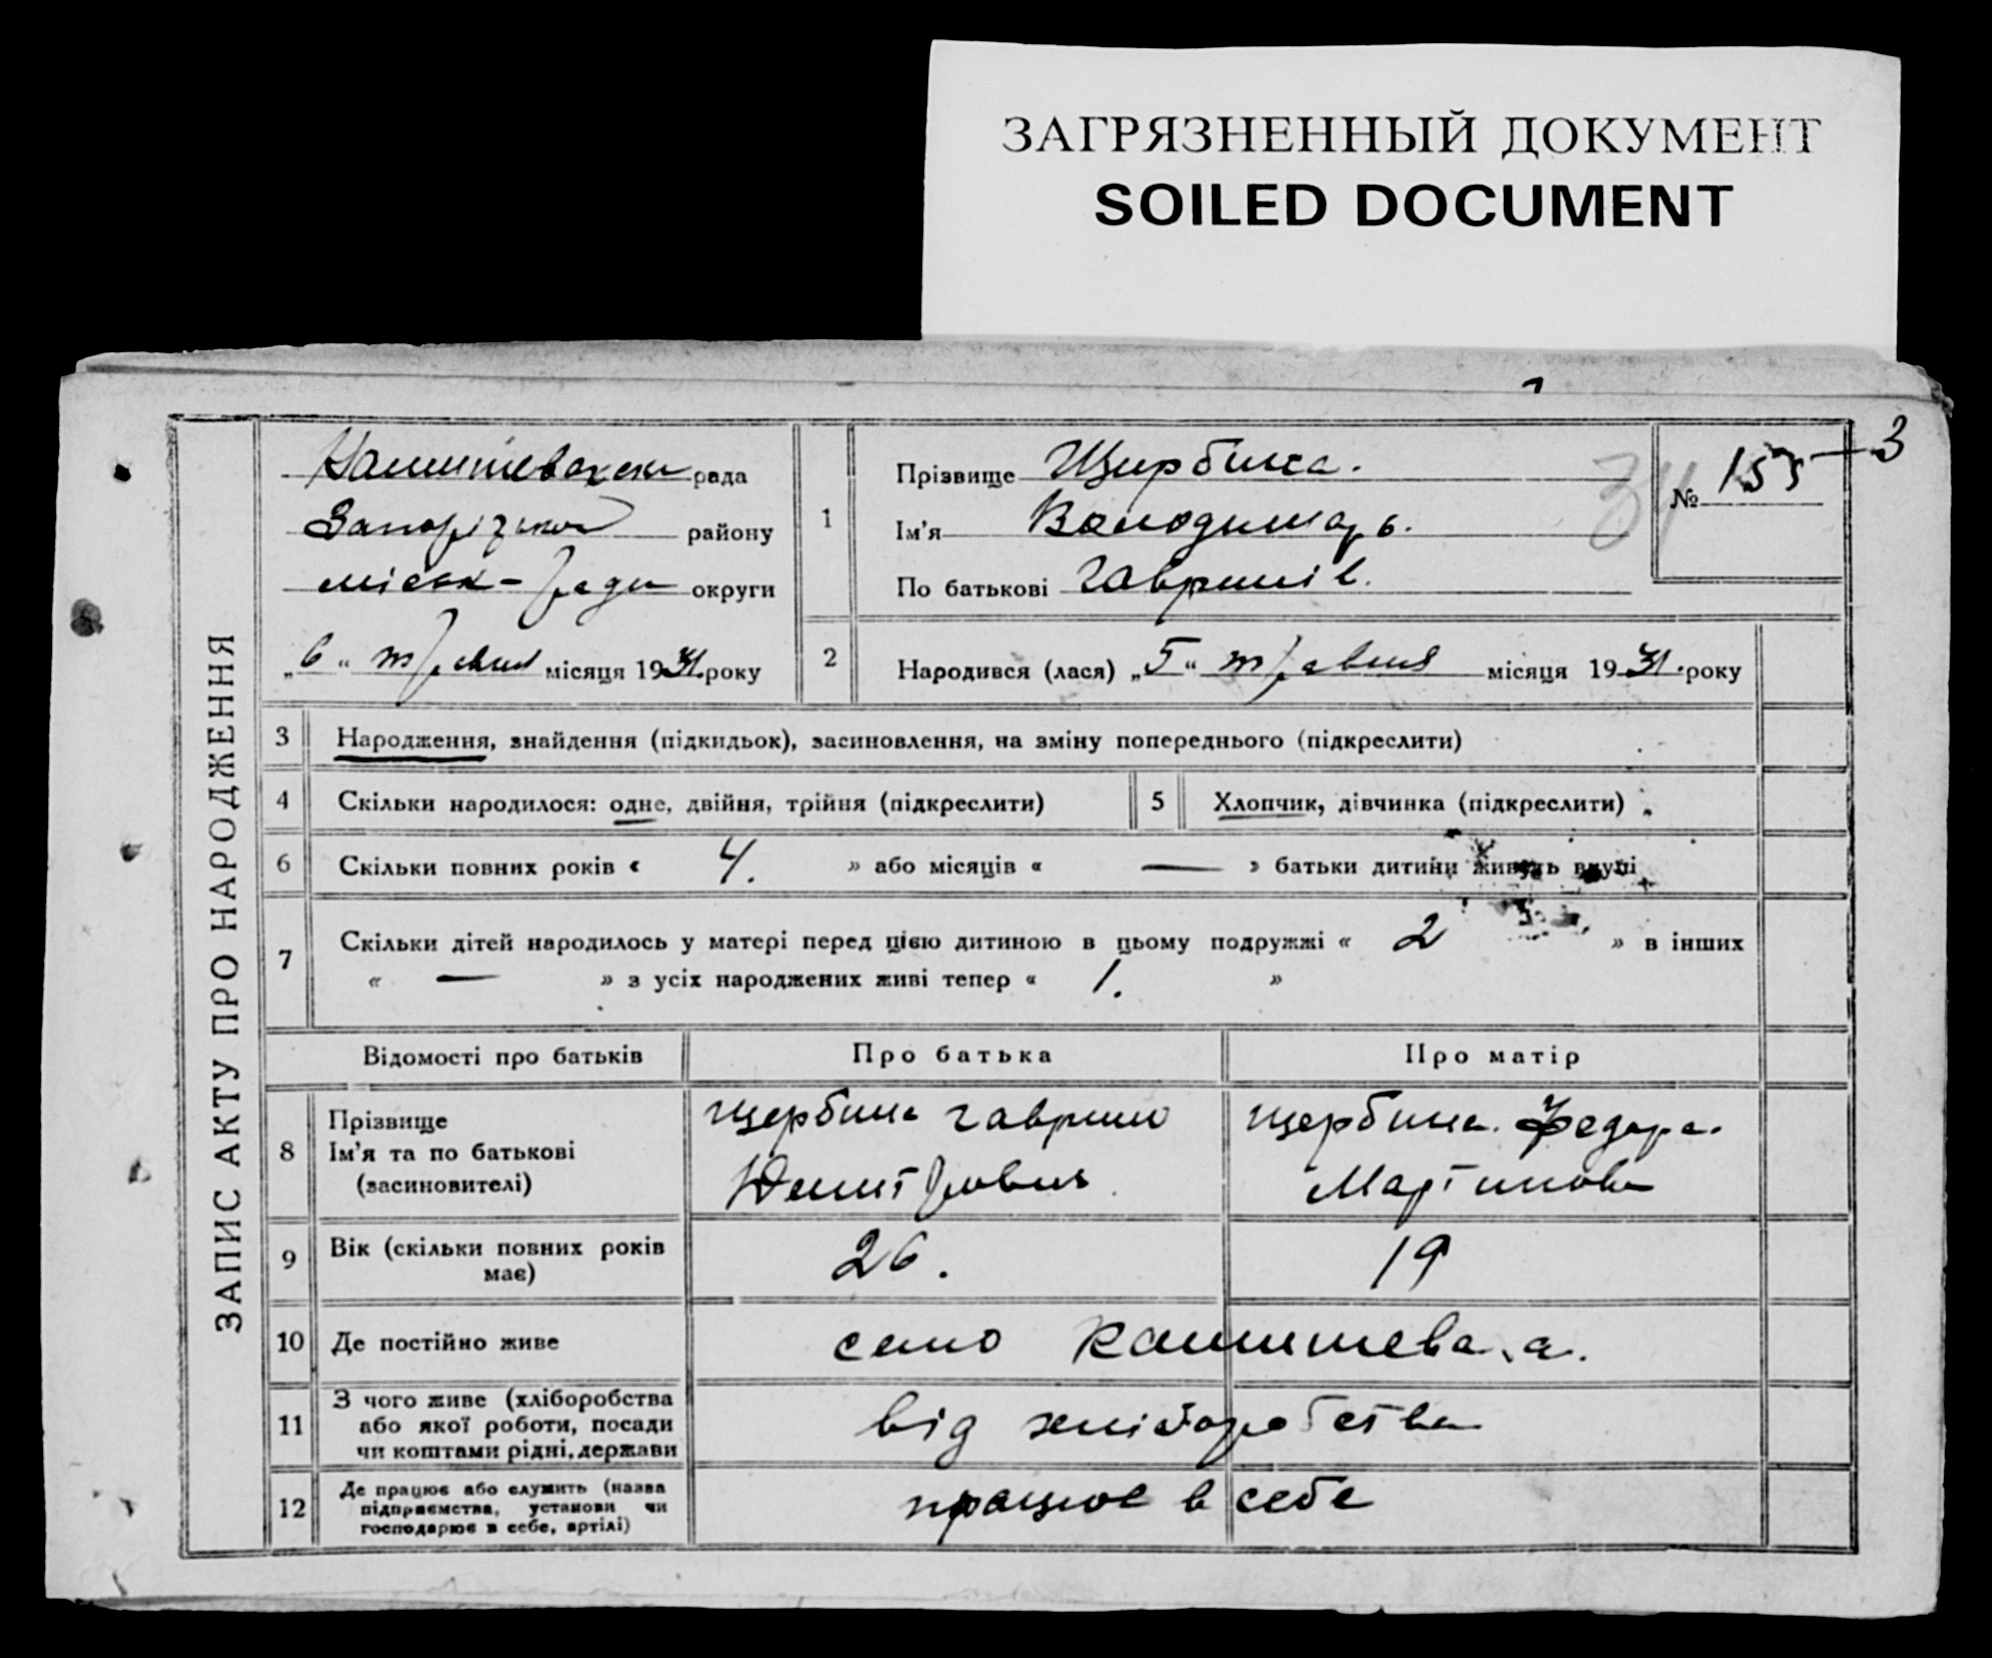 ЗАГРЯЗНЕННЫЙ ДОКУМЕНТ
SOILED DOCUMENT
ЗАПИС АКТУ ПРО НАРОДЖЕННЯ
рада
Запорізької району
міськ-ради округи
„6“ травня місяця 1931 року
3
№ 155
34
1
Прізвище Щербина.
Ім'я Володимарь.
По батькові Гаврилів.
2 Народився (лася) „5“ травня місяця 1931. року
3 Народження, знайдення (підкидьок), засиновлення, на зміну попереднього (підкреслити)
4 Скільки народилося: одне, двійня, трійня (підкреслити)
5 Хлопчик, дівчинка (підкреслити)
6 Скільки повних років « 4. » або місяців « — » батьки дитини живуть вкупі
7 Скільки дітей народилось у матері перед цією дитиною в цьому подружжі « 2 » в інших
« — » з усіх народжених живі тепер « 1. »
Відомості про батьків Про батька Про матір
8 Прізвище
Ім'я та по батькові
(засиновителі)
Щербина Гаврило
Дмитрович
Щербина. Федора.
Мартинова
9 Вік (скільки повних років
має)
26. 19
10 Де постійно живе село
11 З чого живе (хліборобства
або якої роботи, посади
чи коштами рідні, держави
від хліборобства
12 Де працює або служить (назва
підприємства, установи чи
господарює в себе, артілі)
працює в себе